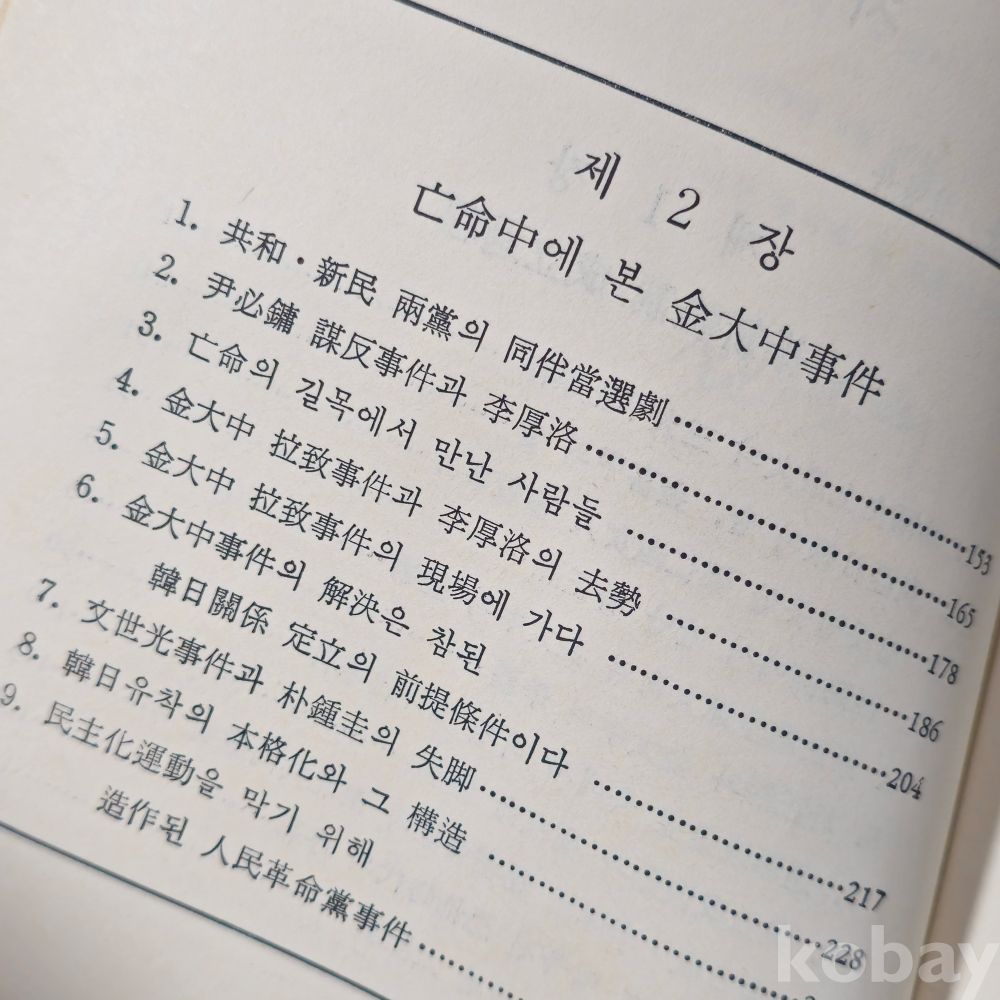 제 2 장
亡命中에 본 金大中事件
1. 共和·新民 兩黨의 同伴當選劇 153
2. 尹必鏞 謀反事件과 李厚洛 165
3. 亡命의 길목에서 만난 사람들 178
4. 金大中 拉致事件과 李厚洛의 去勢 186
5. 金大中 拉致事件의 現場에 가다 204
6. 金大中事件의 解決은 참된
韓日關係 定立의 前提條件이다 217
7. 文世光事件과 朴鍾圭의 失脚 228
8. 韓日유착의 本格化와 그 構造
9. 民主化運動을 막기 위해
造作된 人民革命黨事件
kobay